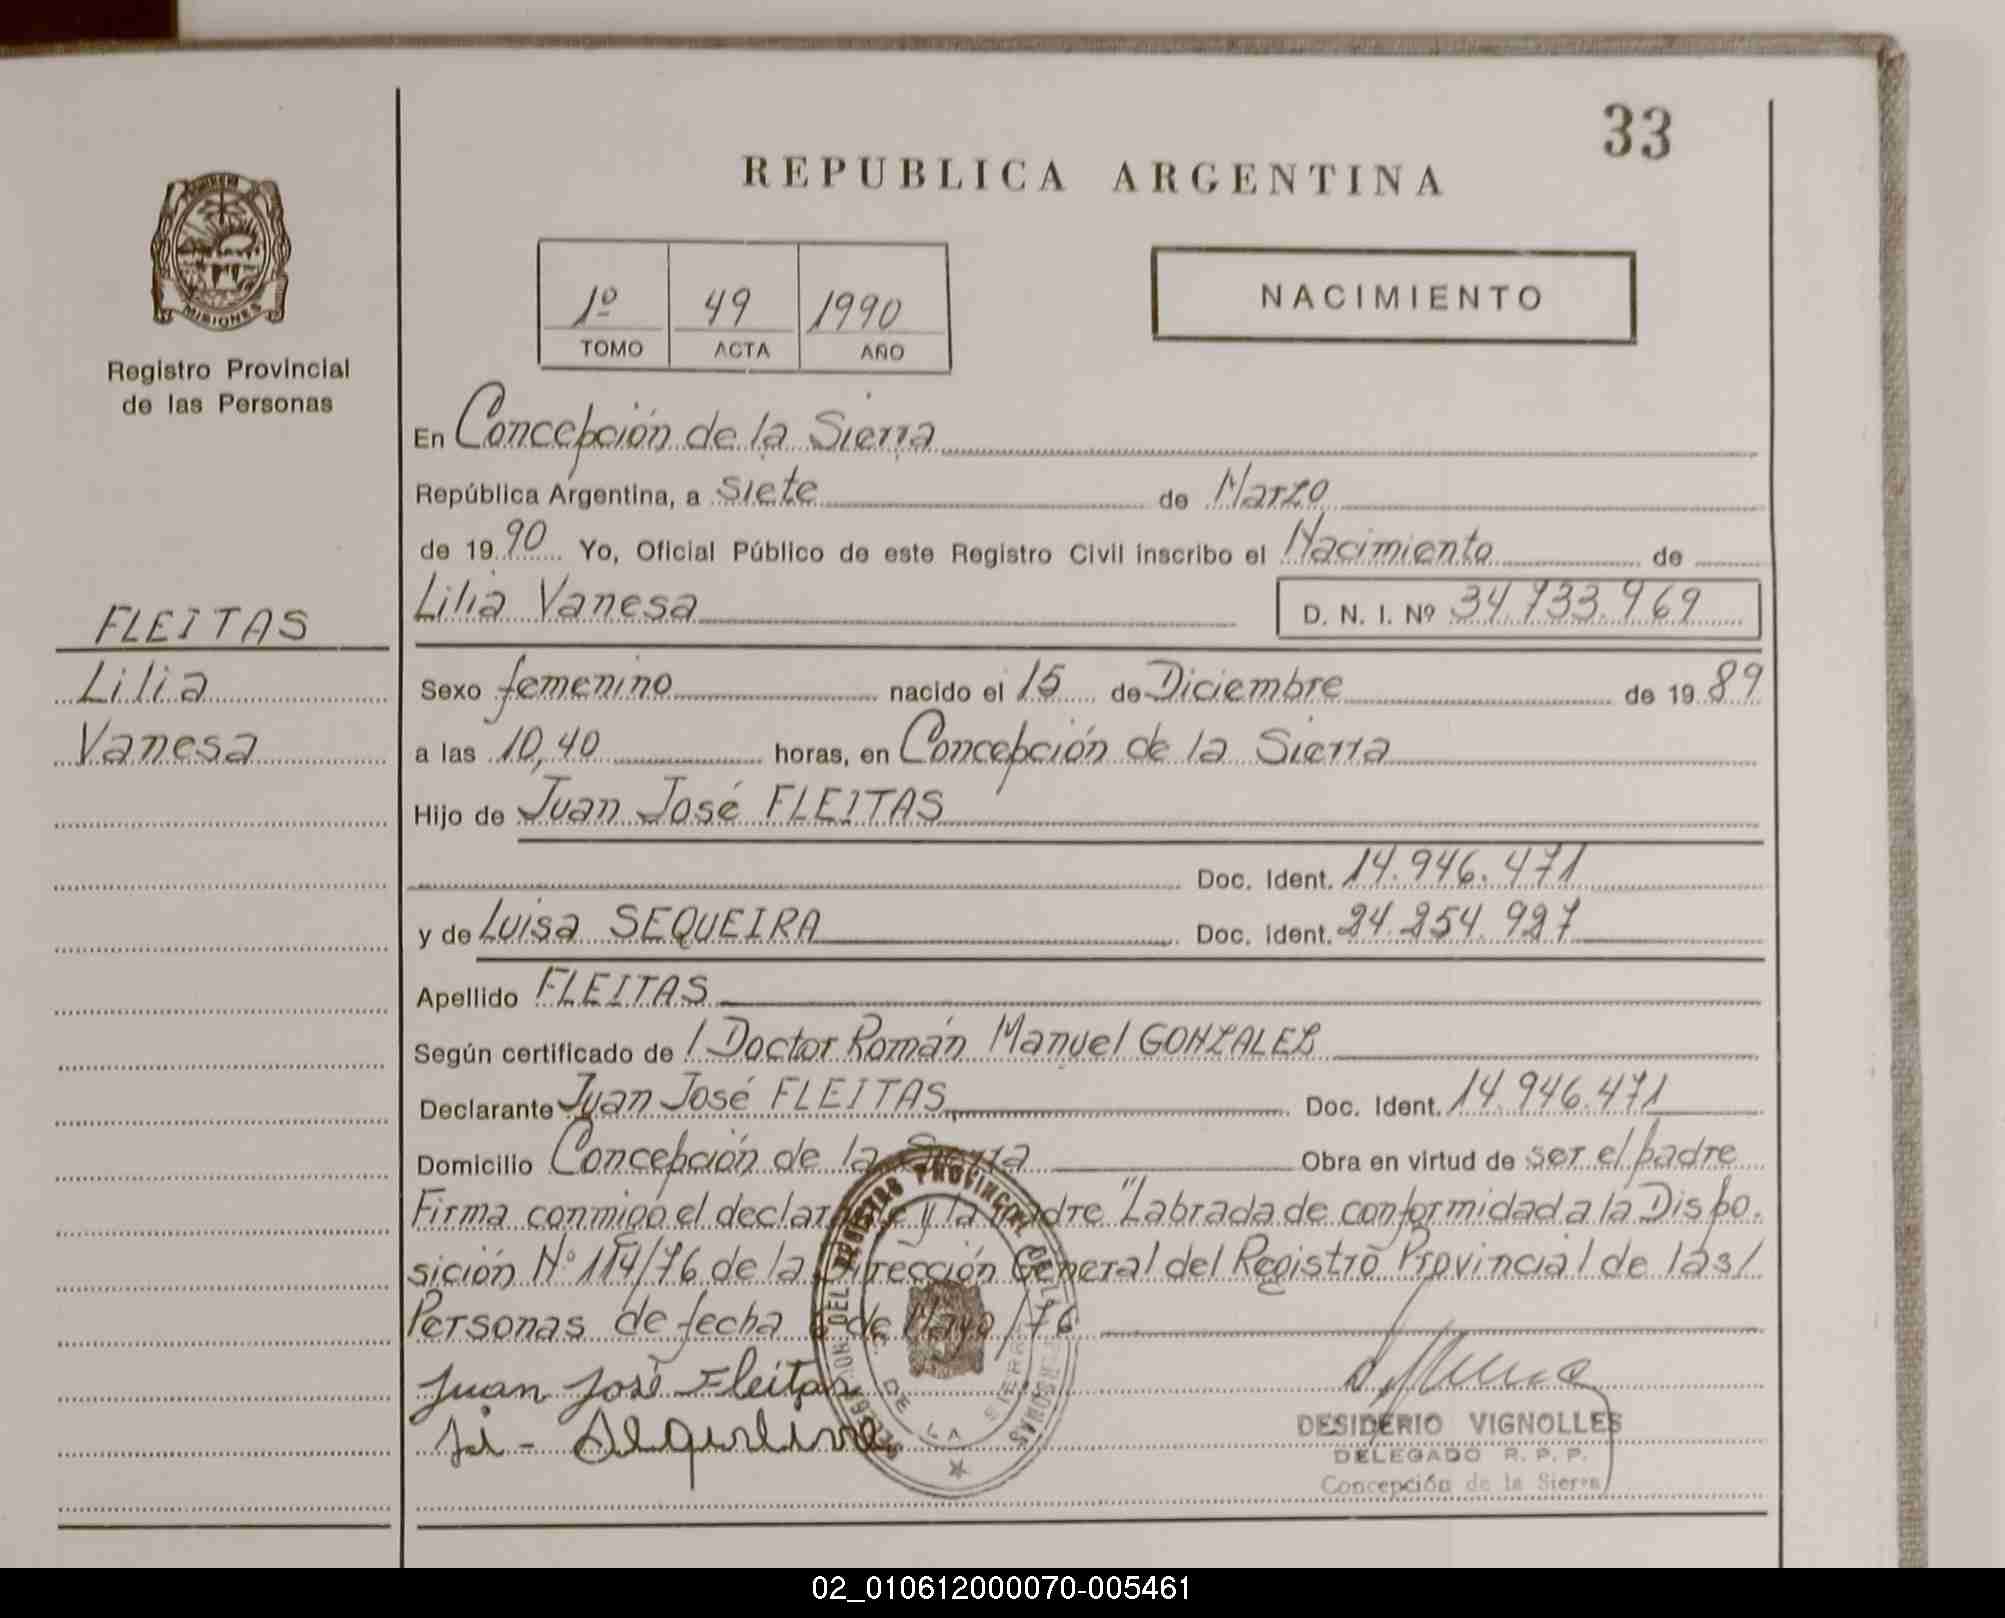 33
REPUBLICA ARGENTINA
MISIONES
Registro Provincial
de las Personas
1º 49 1990
TOMO ACTA AÑO
NACIMIENTO
En Concepción de la Sierra
República Argentina, a siete de Marzo
de 1990 Yo, Oficial Público de este Registro Civil inscribo el Nacimiento de
Lilia Vanesa D. N. I. Nº 34.733.969
FLEITAS
Lilia
Vanesa
Sexo femenino nacido el 15 de Diciembre de 1989
a las 10,40 horas, en Concepción de la Sierra
Hijo de Juan José FLEITAS
Doc. Ident. 14.946.471
y de Luisa SEQUEIRA Doc. Ident. 24.254.927
Apellido FLEITAS
Según certificado de / Doctor Román Manuel GONZALEZ
Declarante Juan José FLEITAS, Doc. Ident. 14.946.471
Domicilio Concepción de la Sierra Obra en virtud de ser el padre
Firma conmigo el declarante y la madre "Labrada de conformidad a la Dispo.
sición Nº 114/76 de la Dirección General del Registro Provincial de las/
Personas de fecha de Mayo/76
Juan José Fleitas
DESIDERIO VIGNOLLES
DELEGADO R. P. P.
Concepción de la Sierra
REGISTRO PROVINCIAL DE LAS PERSONAS
DE LA SIERRA
02_010612000070-005461